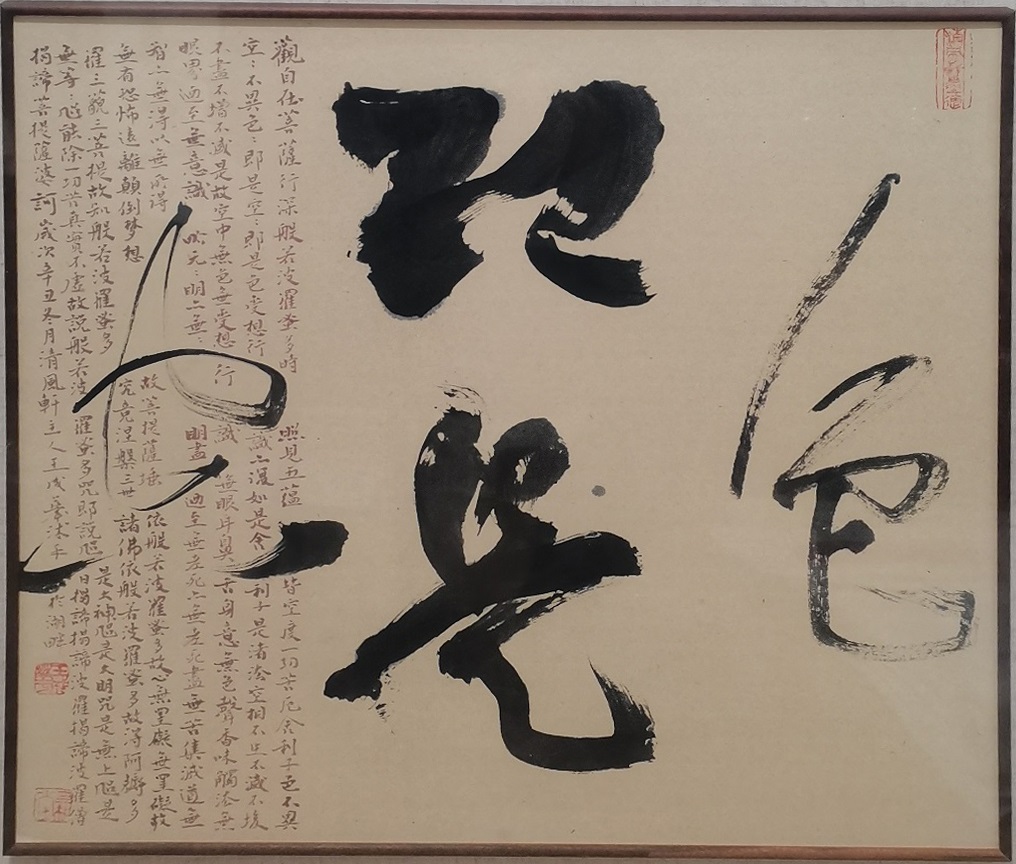 色
即是
空
觀自在菩薩行深般若波羅蜜多時照見五蘊皆空度一切苦厄舍利子色不異
空〻不異色〻即是空〻即是色受想行識亦復如是舍利子是諸法空相不生不滅不垢
不盡不增不減是故空中無色無受想行識無眼耳鼻舌身意無色聲香味觸法無
眼界迺至無意識無〻明亦無〻明盡迺至無老死亦無老死盡無苦集滅道無
智亦無得以無所得故菩提薩埵依般若波羅蜜多故心無罣礙無罣礙故
無有恐怖遠離顛倒夢想究竟涅槃三世諸佛依般若波羅蜜多故得阿耨多
羅三藐三菩提故知般若波羅蜜多是大神咒是大明咒是無上咒是
無等〻咒能除一切苦真實不虛故說般若波羅蜜多咒即說咒曰揭諦揭諦波羅揭諦波羅僧
揭諦菩提薩婆訶歲次辛丑冬月清風軒主人王成沐手於湖畔